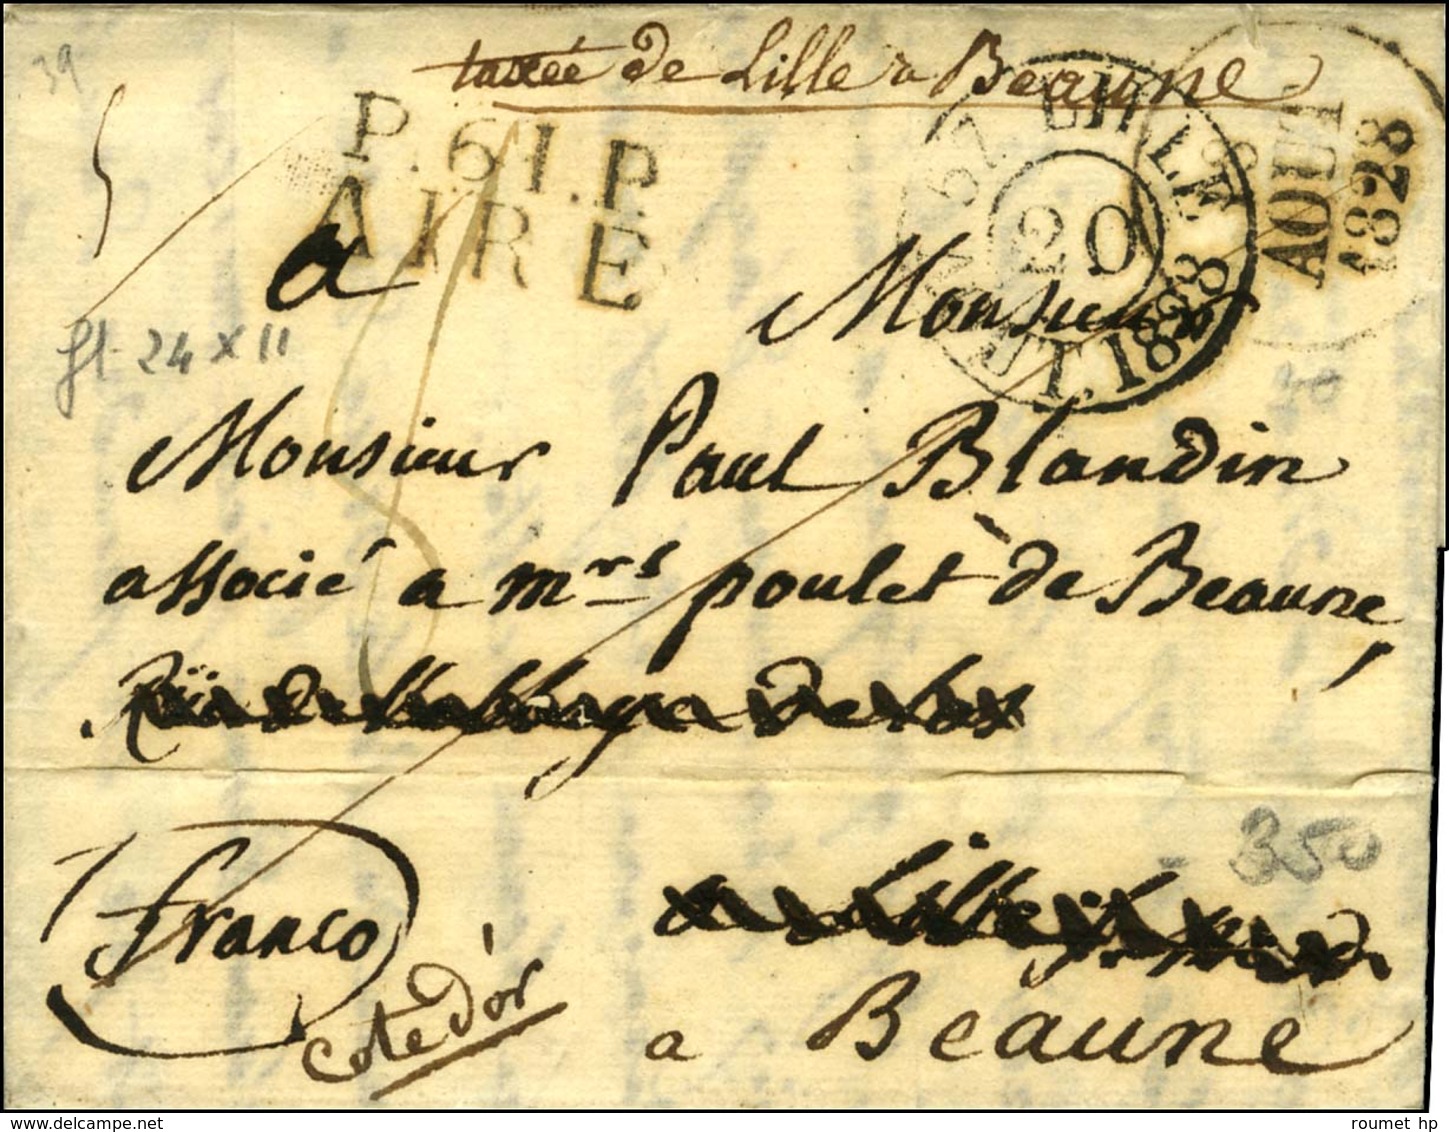 39
taxée de Lille a Beaune
P.61.P.
AIRE
67 LILLE
20
JT. 1828
8
AOUT
1828
5
a Monsieur
24 x 11
Monsieur Paul Blandin
associé a mrs poulet de Beaune,
350
franco
cote d'or
a Beaune
roumet hp